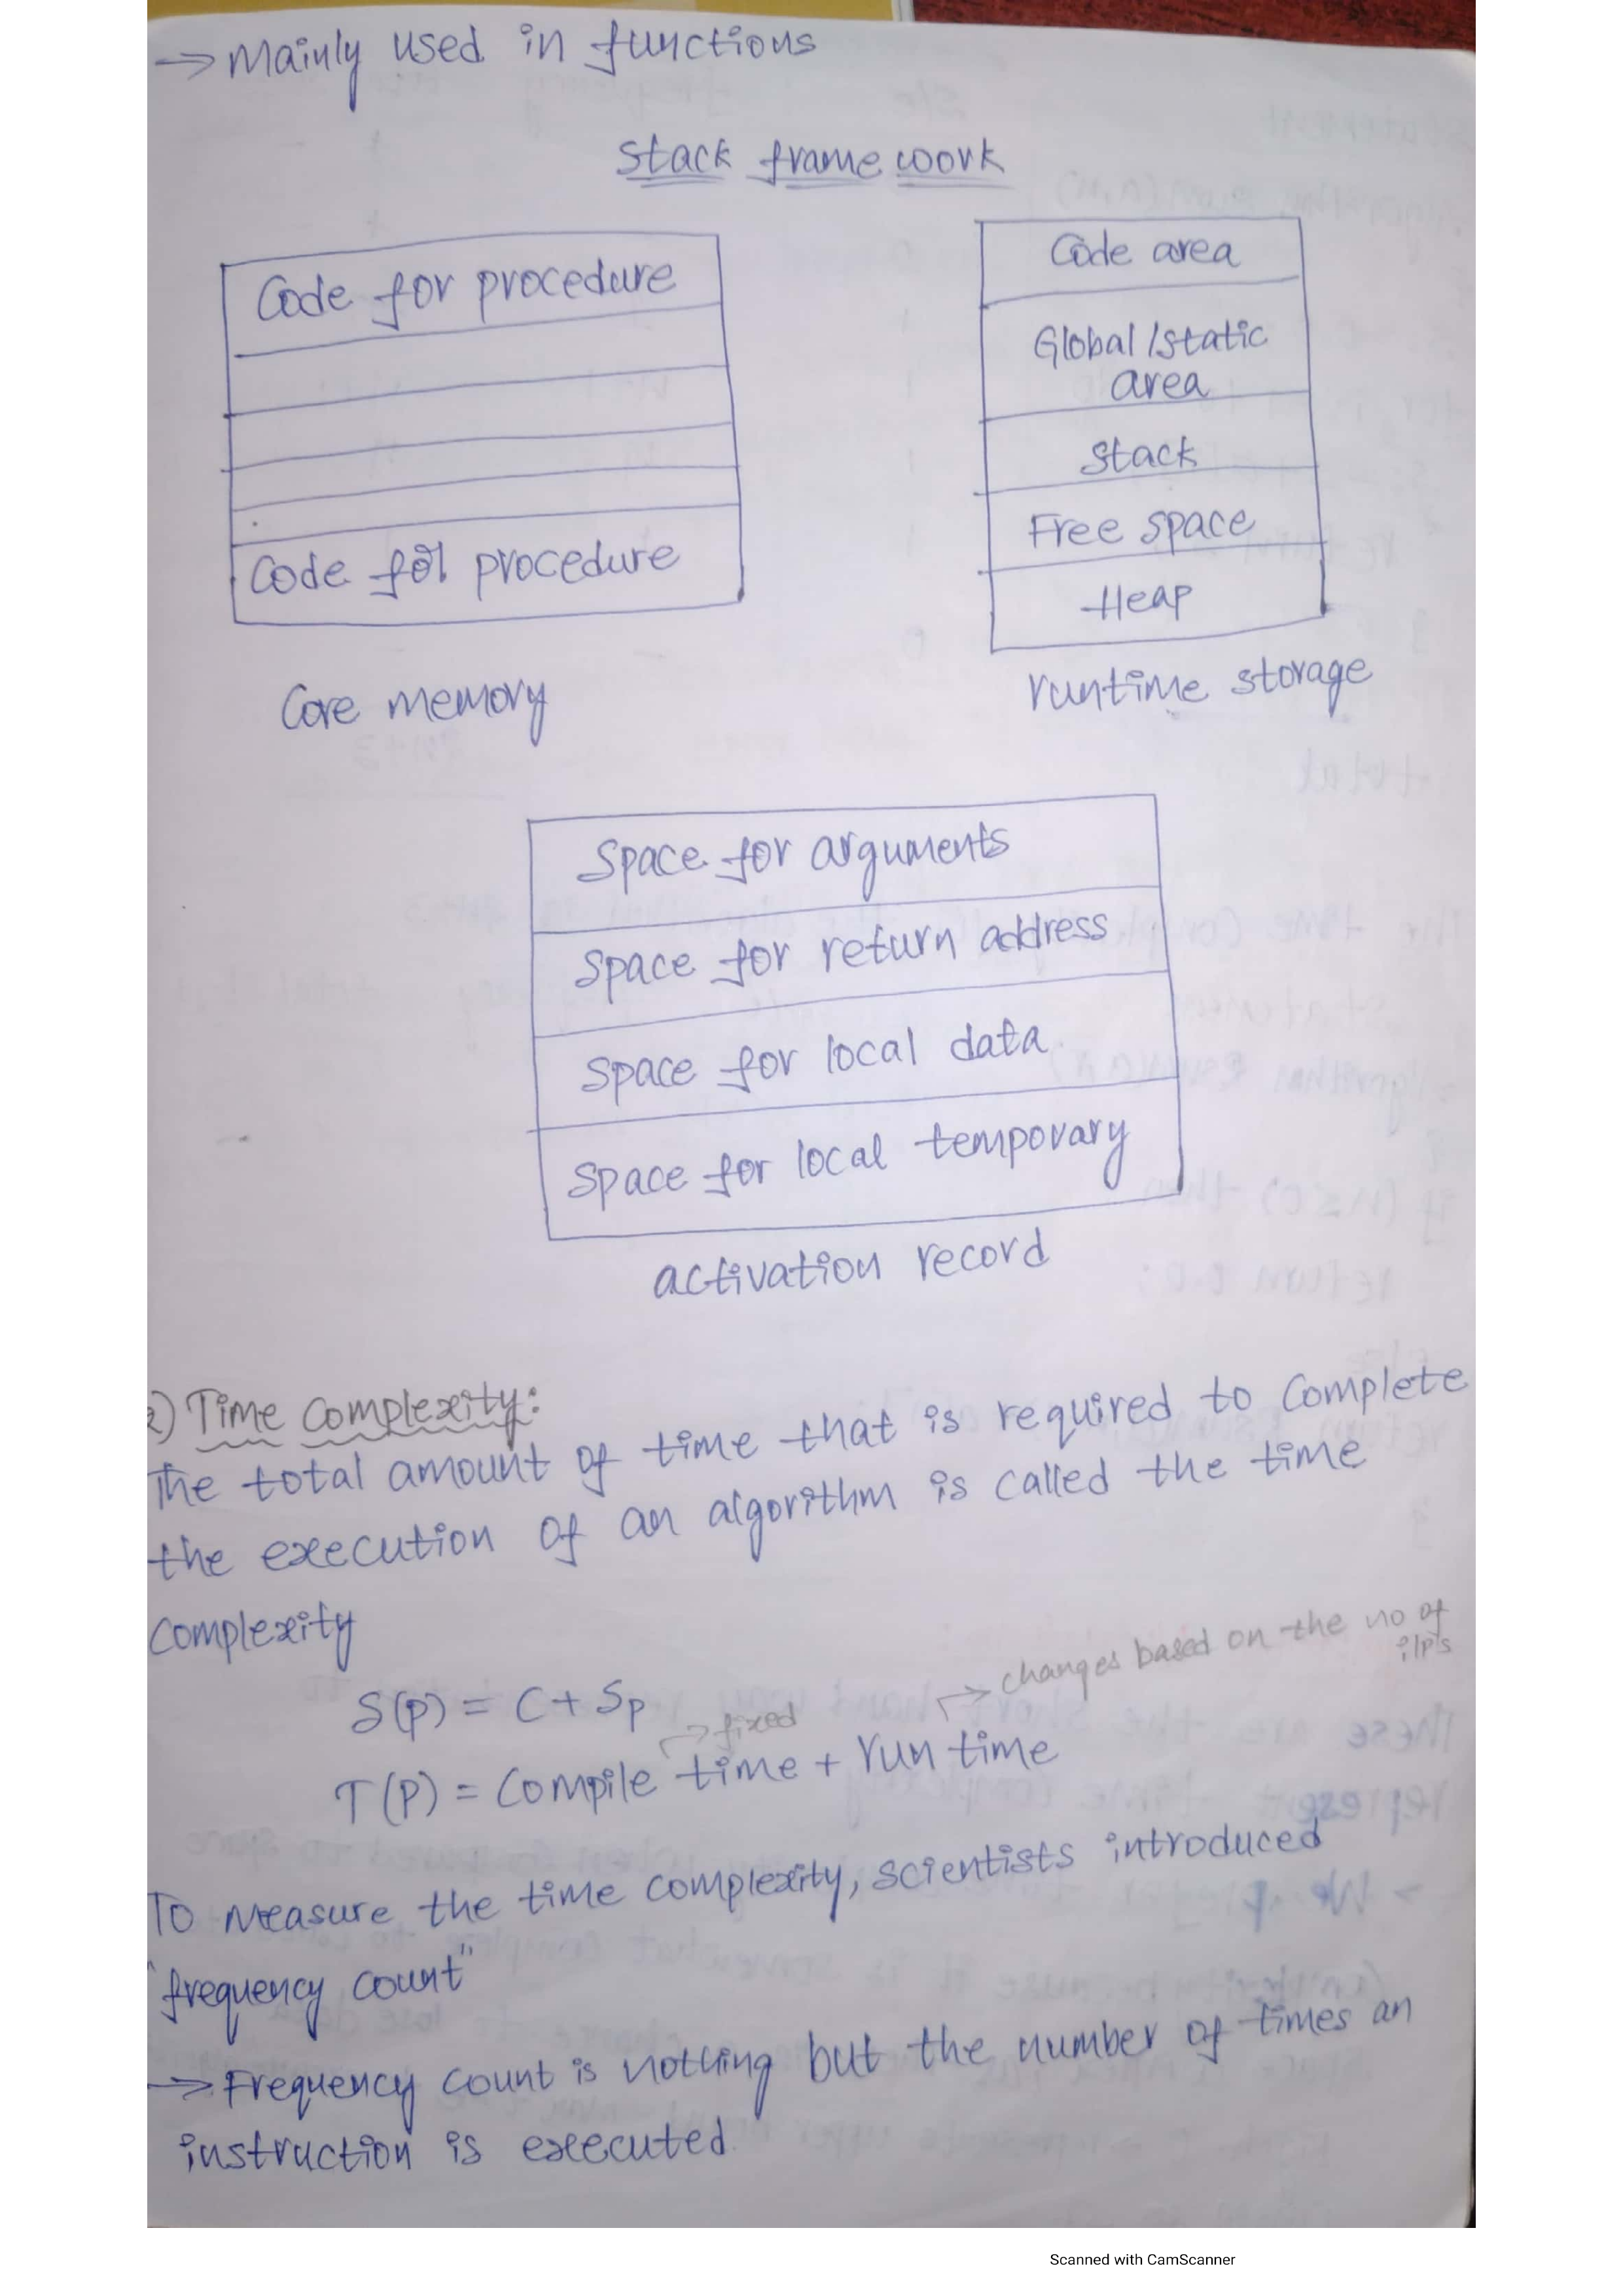 → Mainly used in functions
Stack frame work
Code for procedure
Code for procedure
Core memory
Code area
Global /static
area
Stack
Free space
Heap
runtime storage
Space for arguments
Space for return address
Space for local data
Space for local temporary
activation record
2) Time Complexity:
The total amount of time that is required to complete
the execution of an algorithm is called the time
Complexity
→ changes based on the no of
i/p's
S(P) = C + Sp
→ fixed
T(P) = Compile time + run time
To measure the time complexity, scientists introduced
"frequency count"
→ Frequency count is nothing but the number of times an
instruction is executed.
Scanned with CamScanner